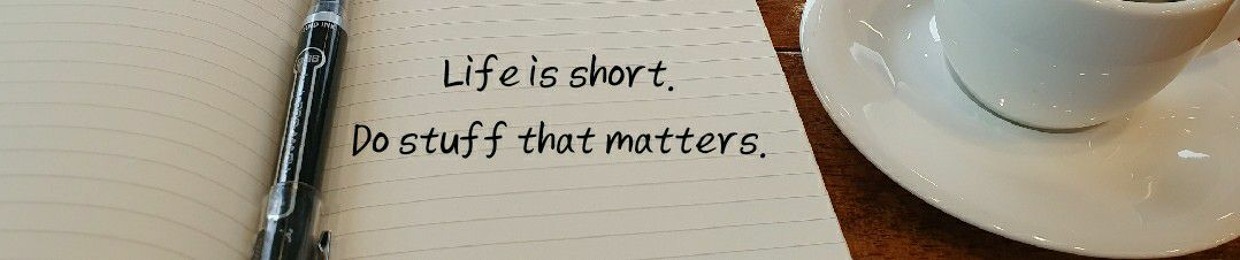 Life is short.
Do stuff that matters.